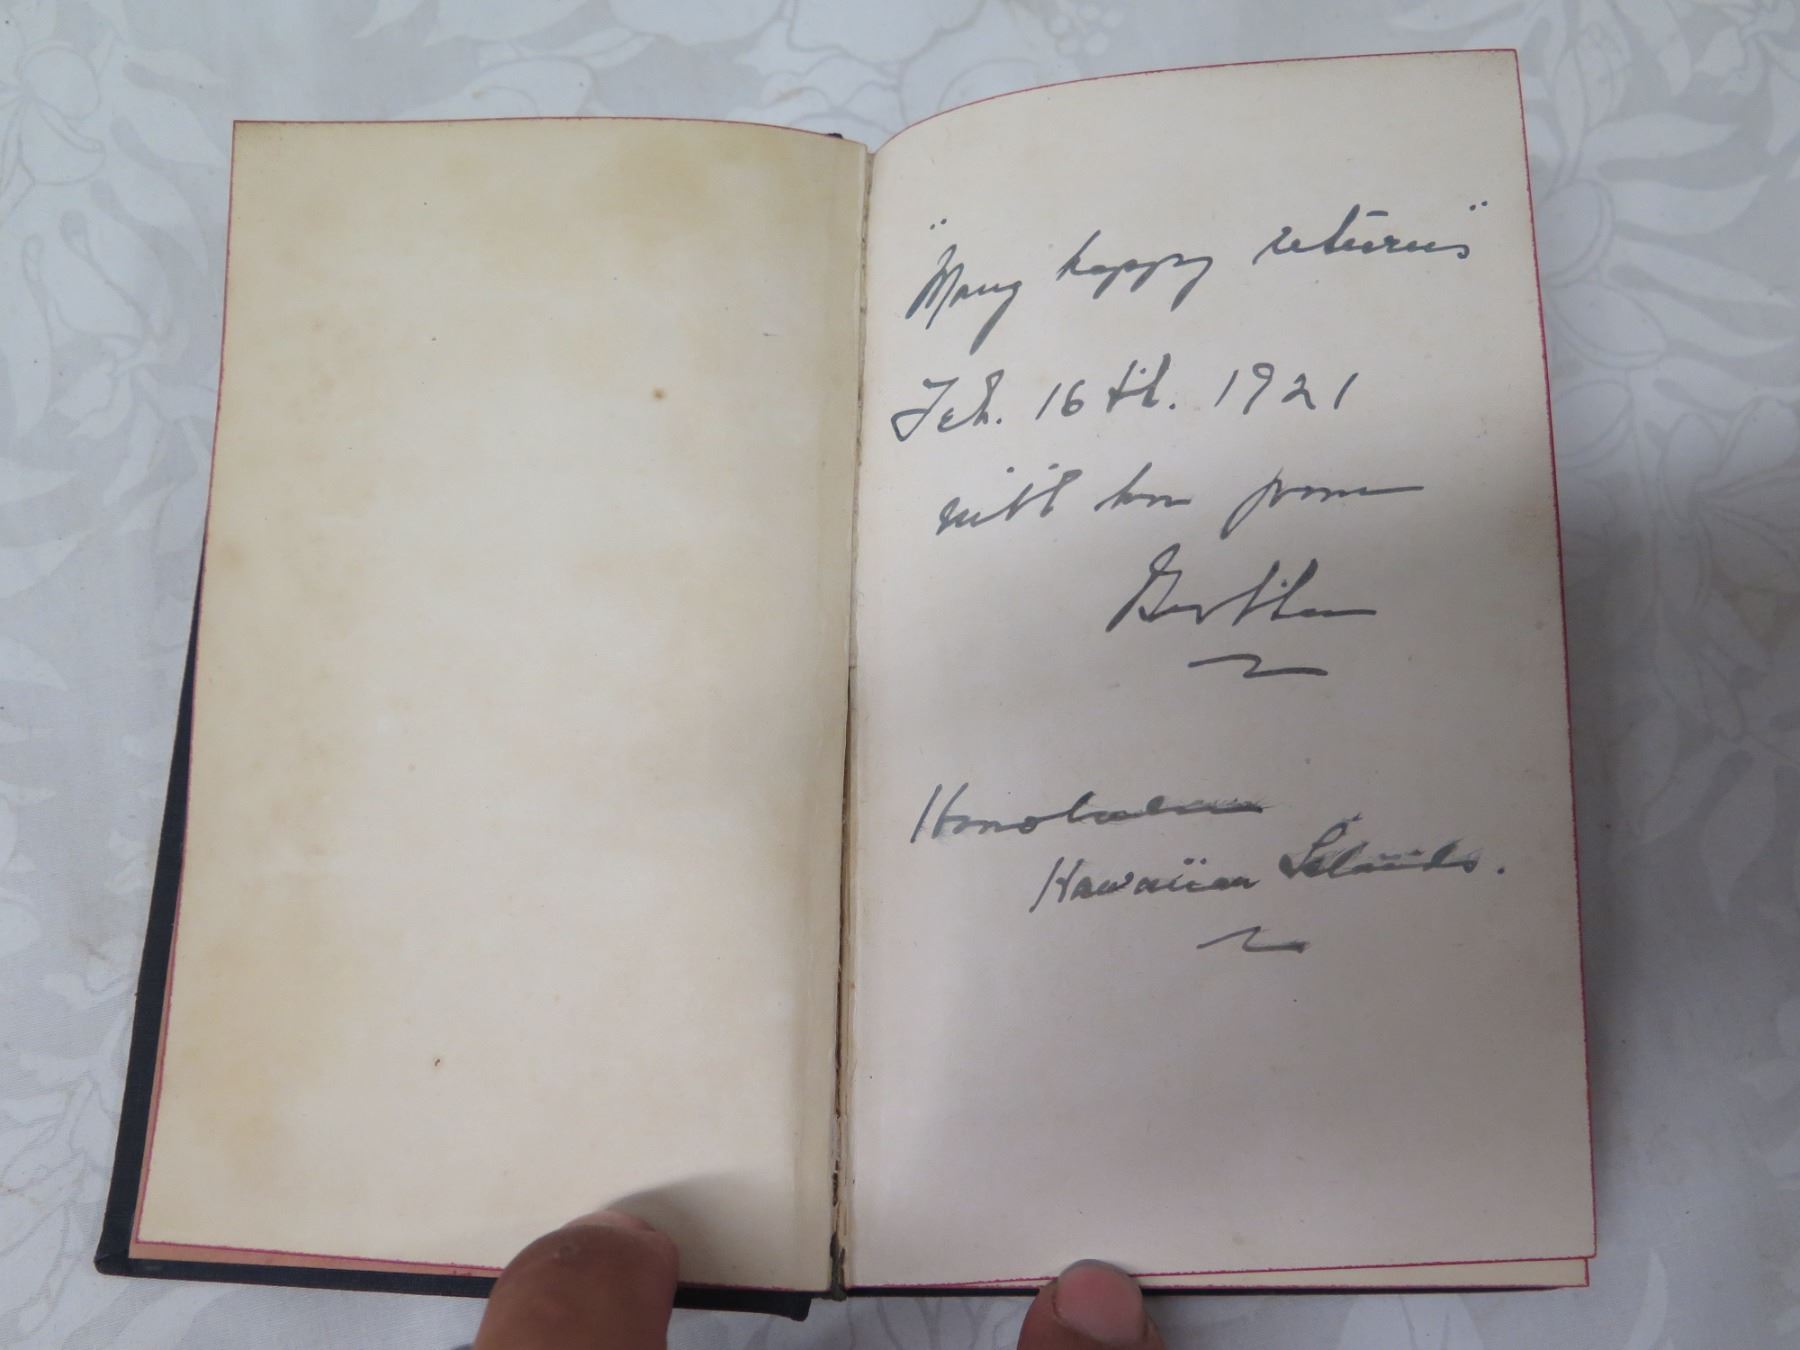 "Many happy returns"
Feb. 16th. 1921
with love from
Bertha
Honolulu
Hawaiian Islands.